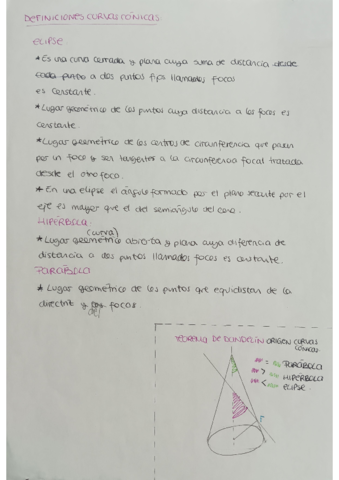 DEFINICIONES CURVAS CÓNICAS
ELIPSE
* Es una curva cerrada y plana cuya suma de distancia desde
cada punto a dos puntos fijos llamados focos
es constante.
* Lugar geométrico de los puntos cuya distancia a los focos es
constante.
* Lugar geometrico de los centros de circunferencia que pasan
por un foco y ser tangentes a la circunferencia focal tratada
desde el otro foco.
* En una elipse el ángulo formado por el plano secante por el
eje es mayor que el del semiangulo del cono.
HIPÉRBOLA
(curva)
* Lugar geométrico abierta y plana cuya diferencia de
distancia a dos puntos llamados focos es constante.
PARÁBOLA
* Lugar geométrico de los puntos que equidistan de la
directriz y focos
del
TEOREMA DE DANDELÍN ORIGEN CURVAS
CÓNICAS
= PARÁBOLA
> HIPÉRBOLA
< ELIPSE.